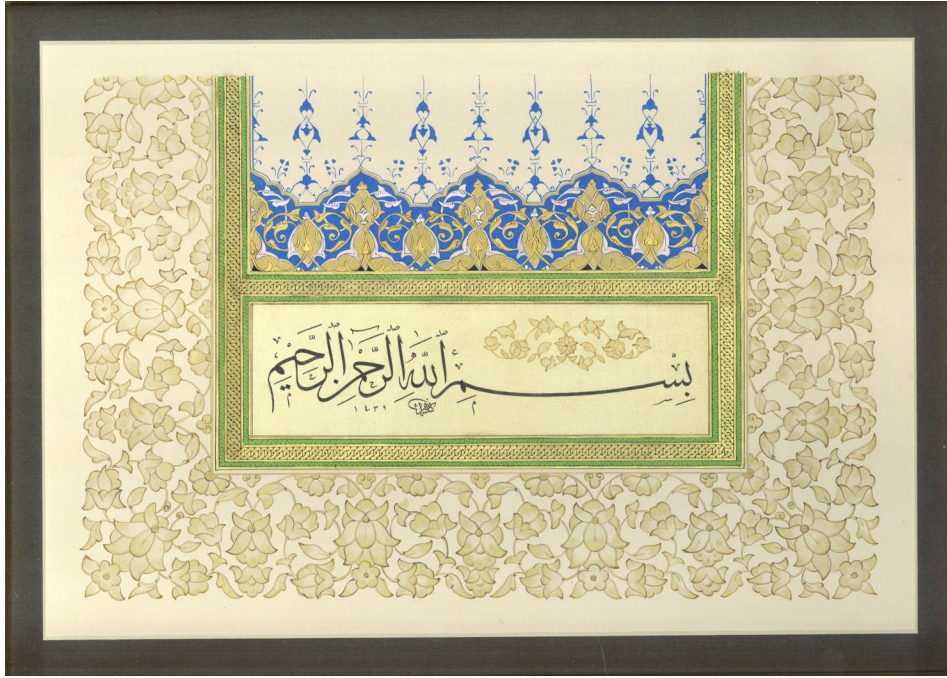 بِسْمِ ٱللَّهِ ٱلرَّحْمَٰنِ ٱلرَّحِيمِ
١٤٣٦